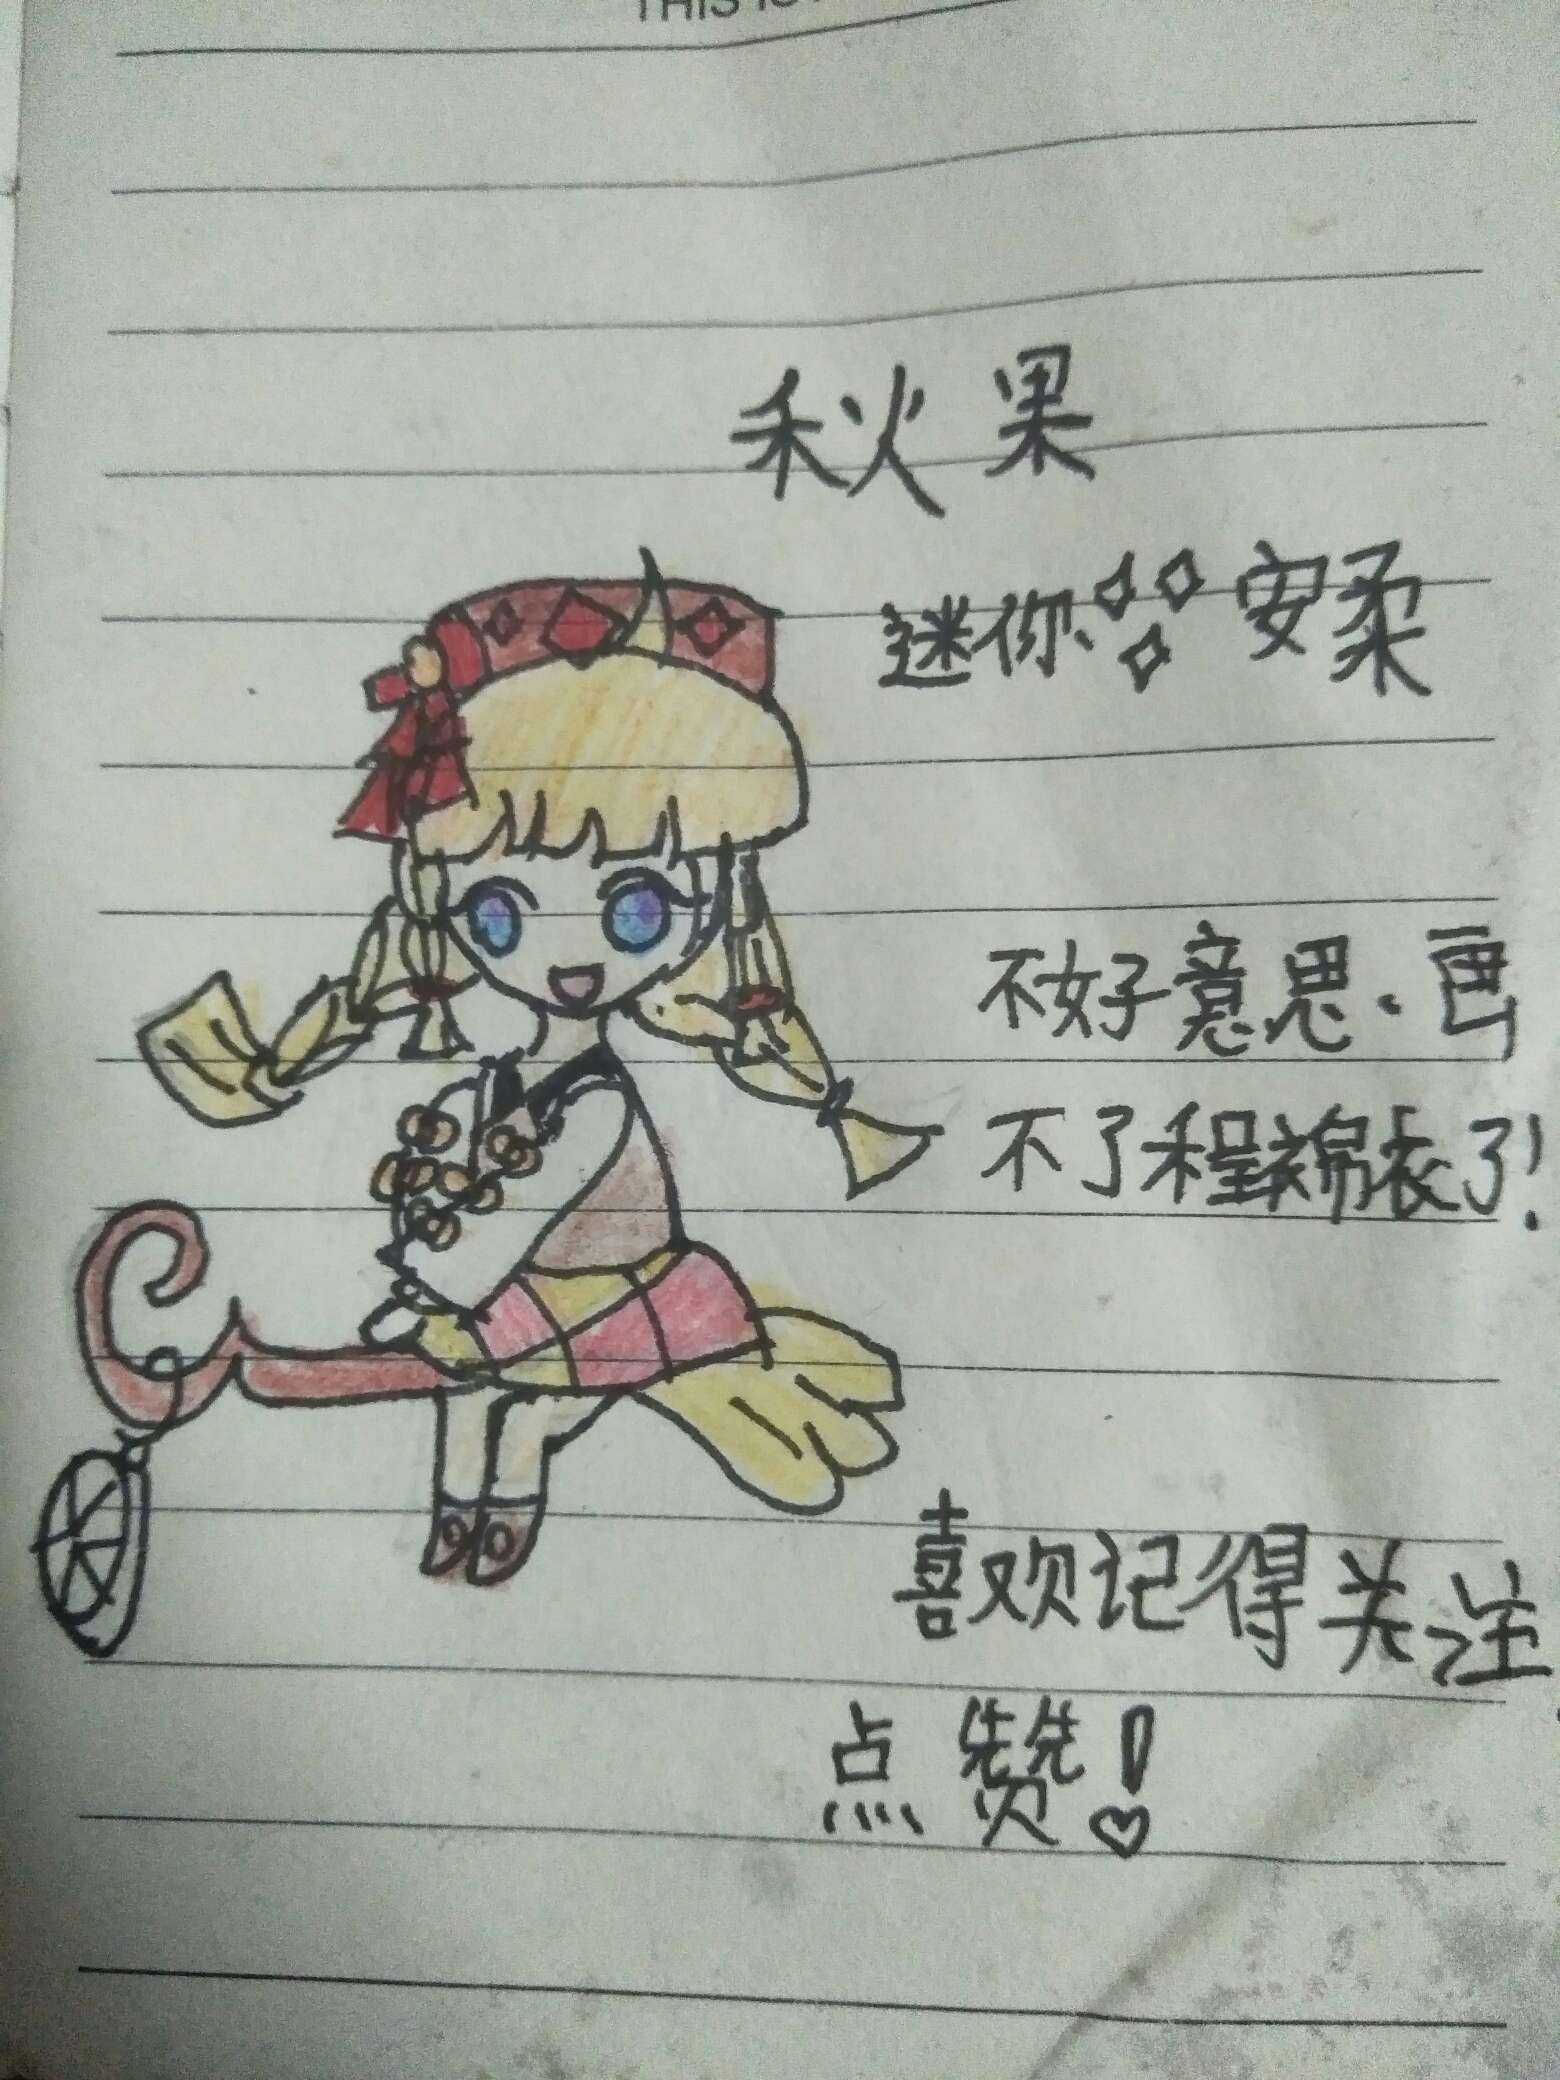 THIS IS
秋果
迷你 安柔
不好意思.画
不了程锦衣了!
喜欢记得关注
点赞!